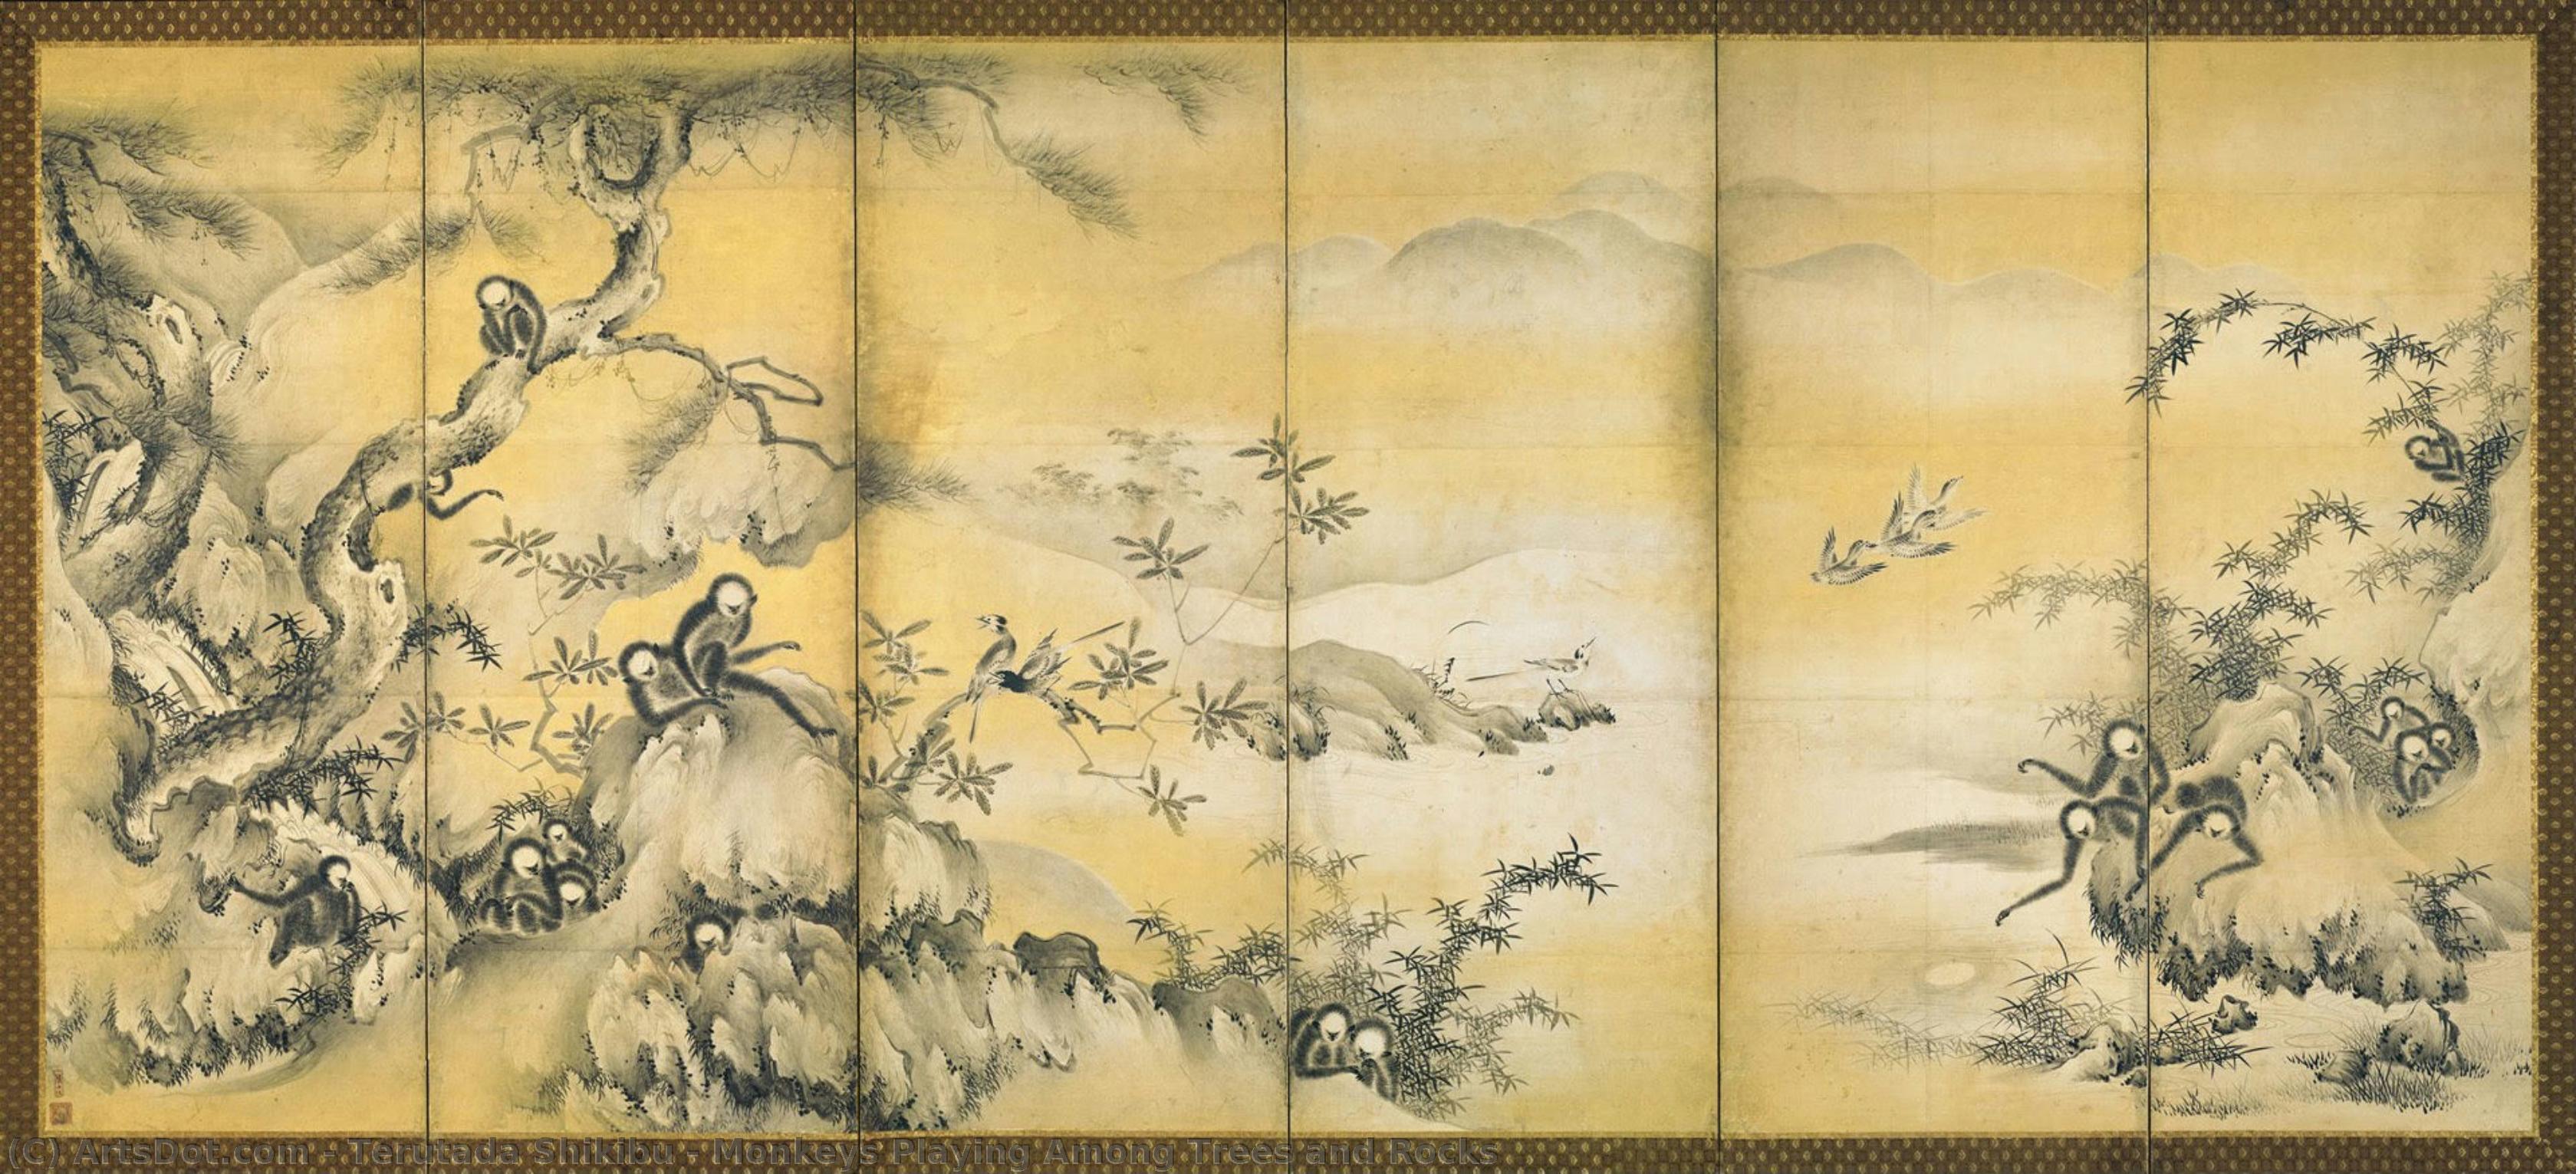 (C) ArtsDot.com - Terutada Shikibu - Monkeys Playing Among Trees and Rocks